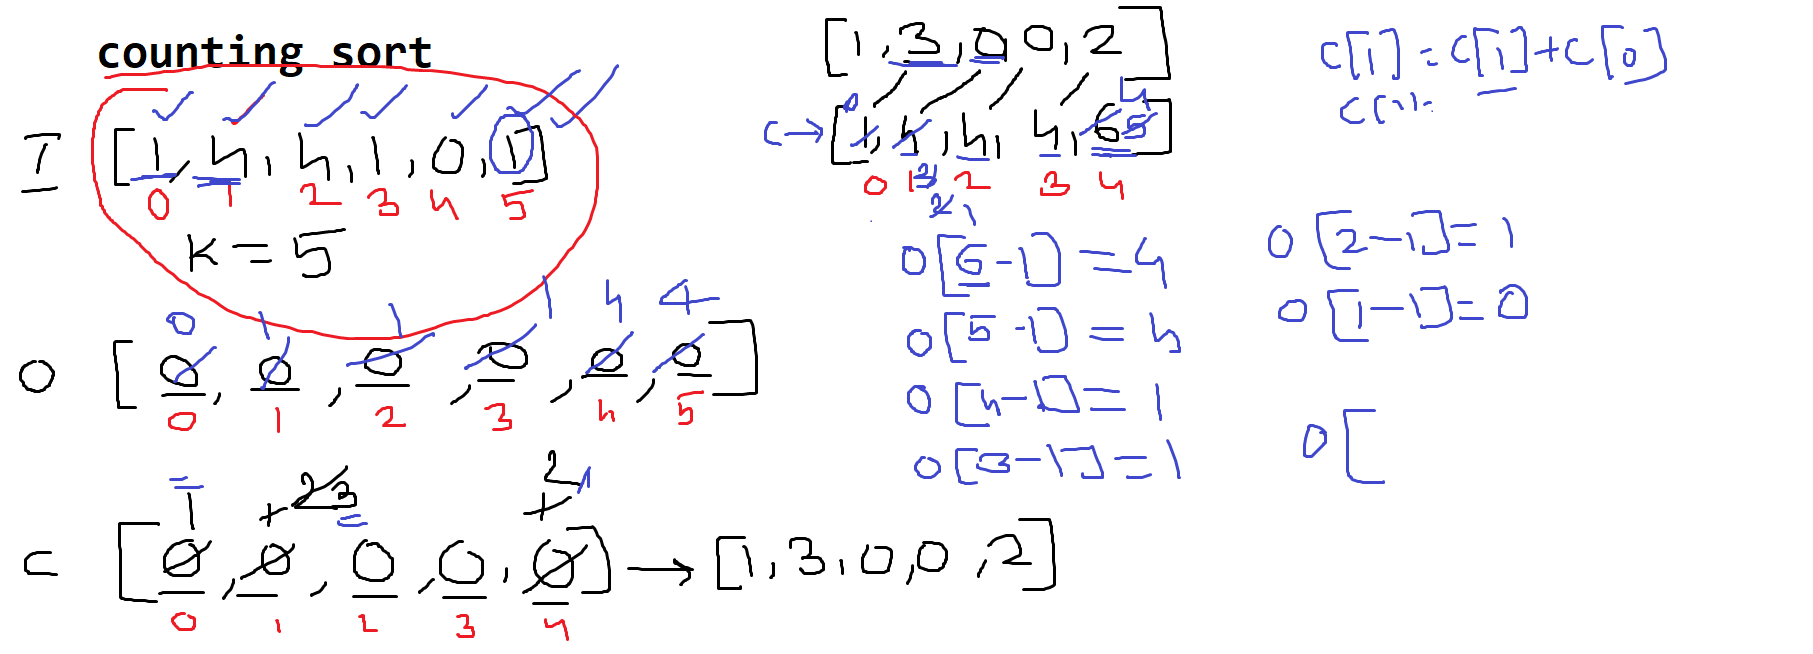 counting sort
I [1, 4, 4, 1, 0, 1]
0 1 2 3 4 5
K = 5
0 1 1 1 4 4
O [0, 0, 0, 0, 0, 0]
0 1 2 3 4 5
1 + 2 3 + 2 1
C [0, 0, 0, 0, 0] → [1, 3, 0, 0, 2]
0 1 2 3 4
[1, 3, 0, 0, 2]
0 4
C → [1, 4, 4, 4, 6 5]
0 1 3 2 3 4
2 1
O [6 - 1] = 4
O [5 - 1] = 4
O [4 - 1] = 1
O [3 - 1] = 1
C[1] = C[1] + C[0]
O [2 - 1] = 1
O [1 - 1] = 0
O [